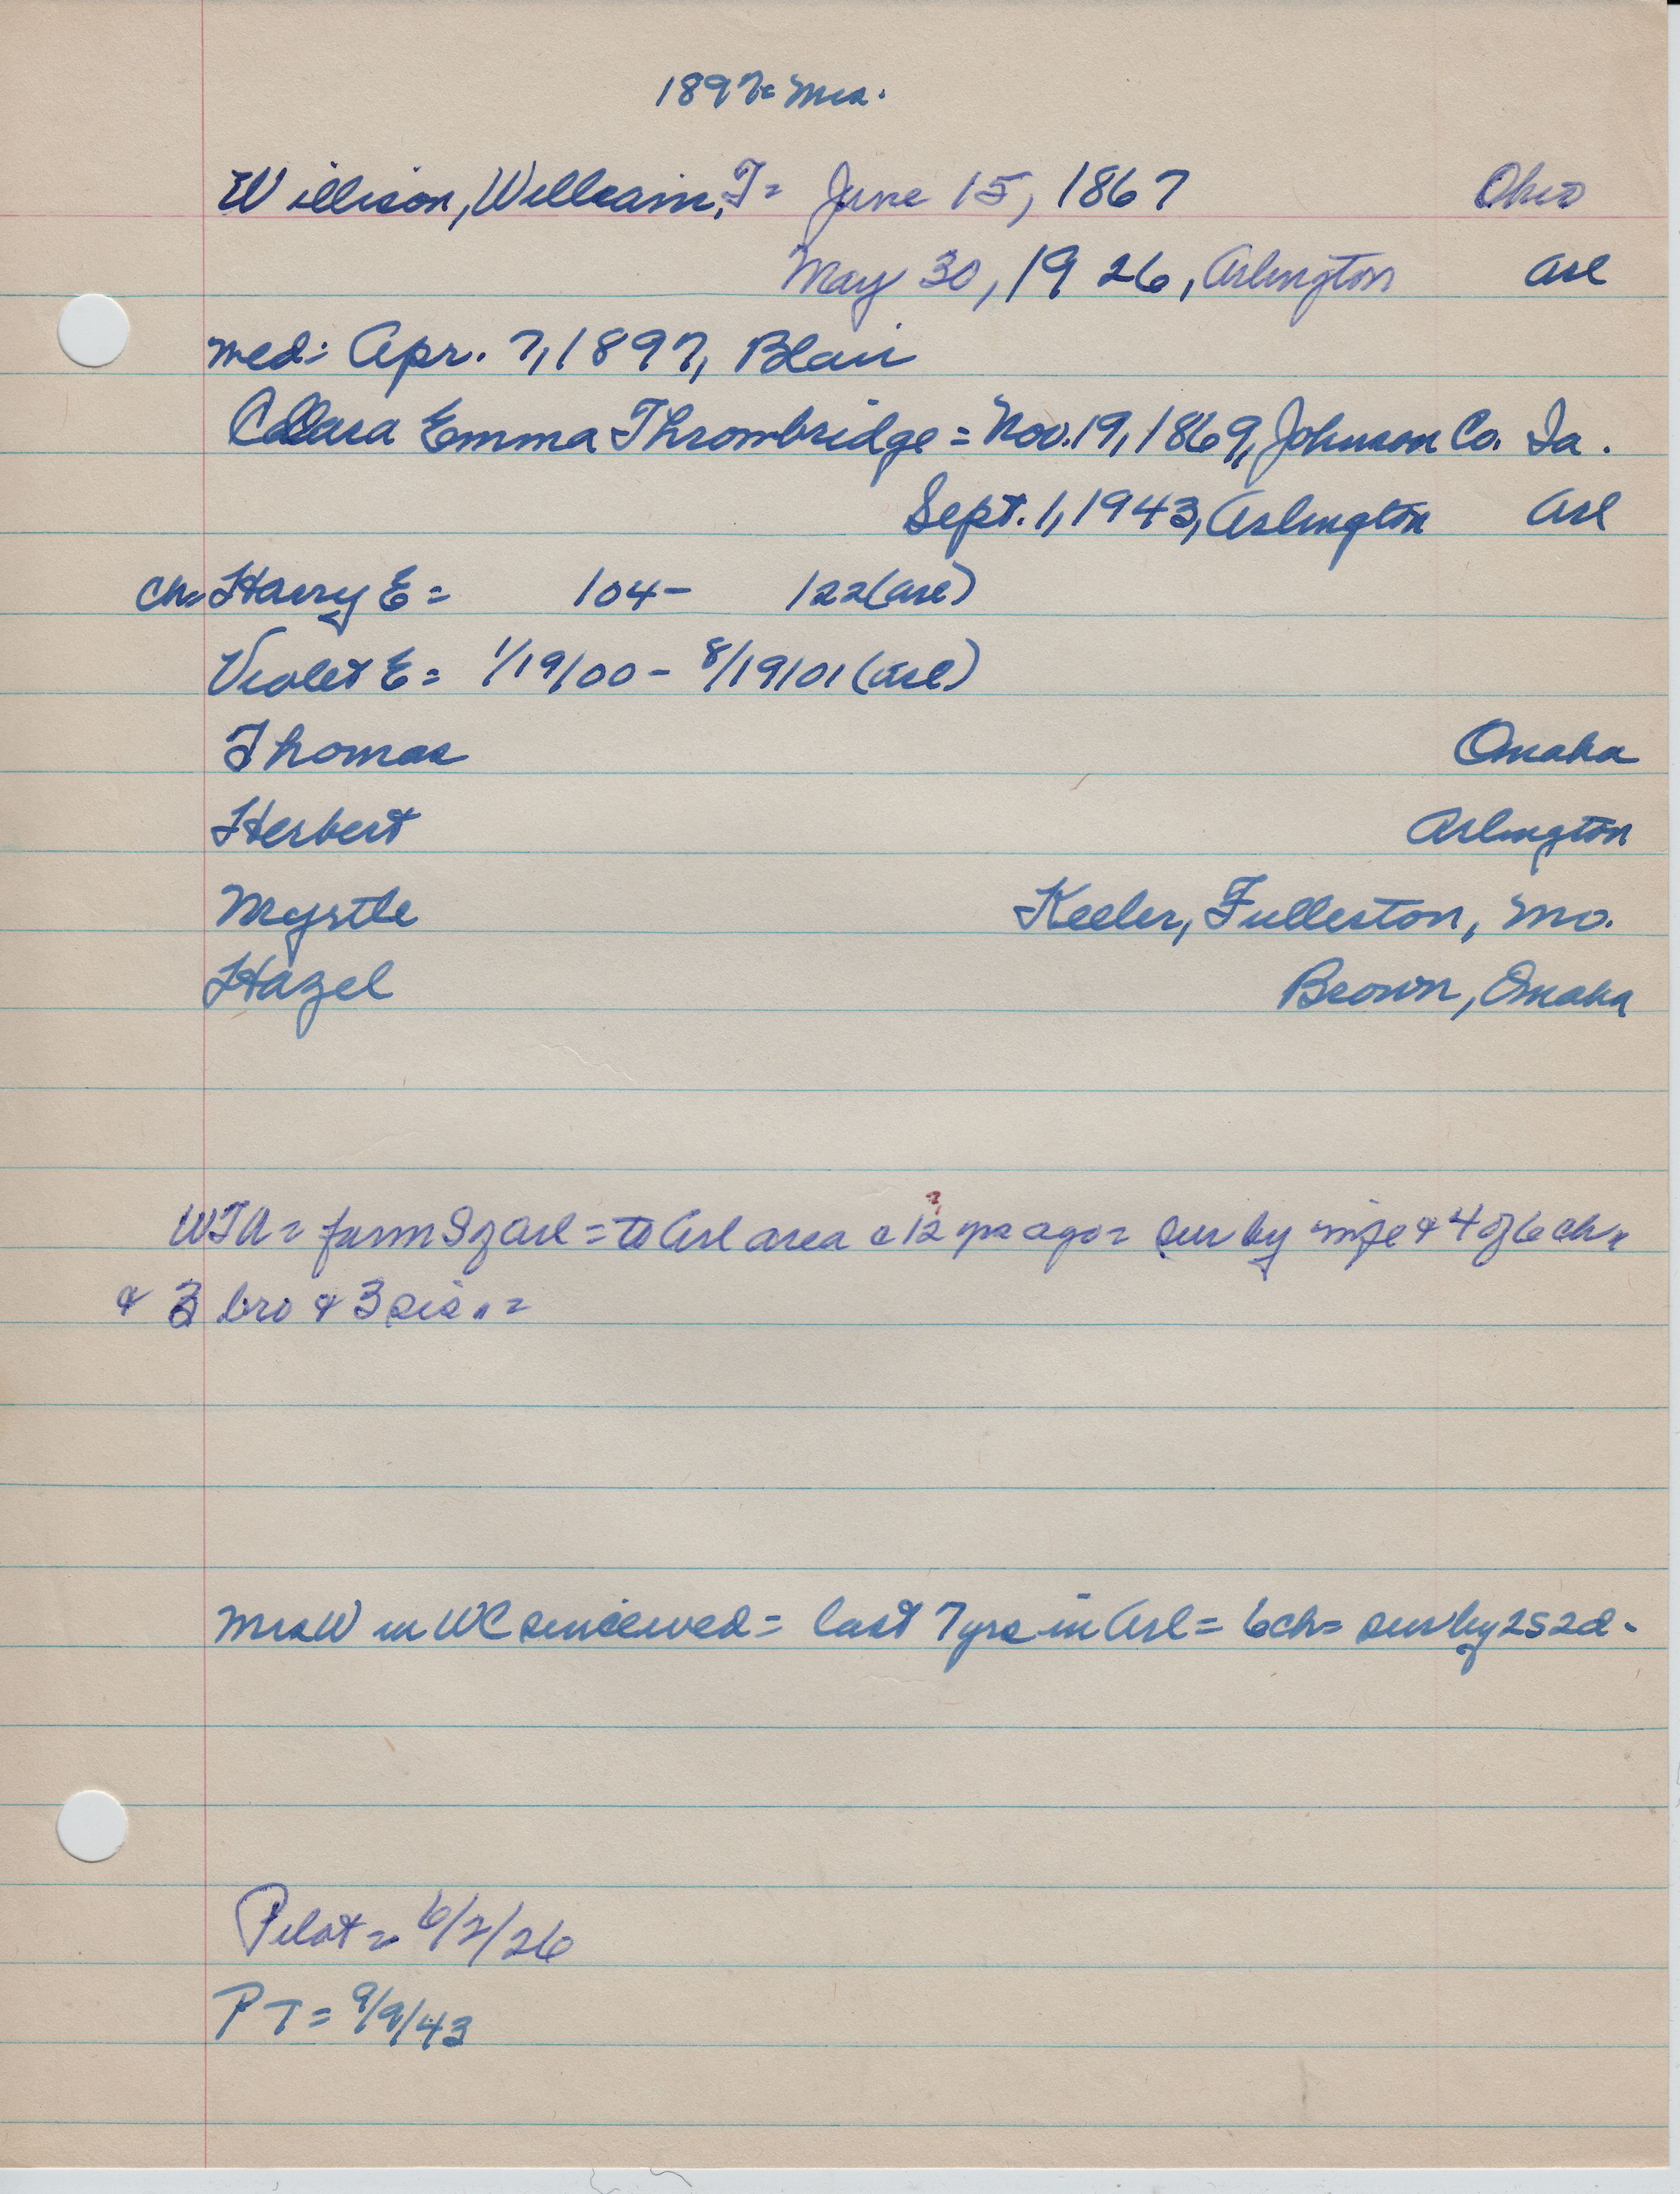 1897= Mrs.
Willison, William, T= June 15, 1867 Ohio
May 30, 1926, Arlington Arl
med: Apr. 7, 1897, Blair
Clara Emma Thrombridge = Nov. 19, 1869, Johnson Co. Ia.
Sept. 1, 1943, Arlington Arl
Ch= Harry E = 104- 122(arl)
Violet E = 1/19/00 - 8/19/01 (arl)
Thomas Omaha
Herbert Arlington
Myrtle Keeler, Fullerton, Mo.
Hazel Brown, Omaha
?
= farm S of Arl = to Arl area c 12 yrs ago = sur by wife & 4 of 6 ch=
& 3 bro & 3 sis =
Mrs W in WC = last 7 yrs in Arl = 6 ch = sur by 2s 2d -
Pilot = 6/2/26
PT = 9/9/43